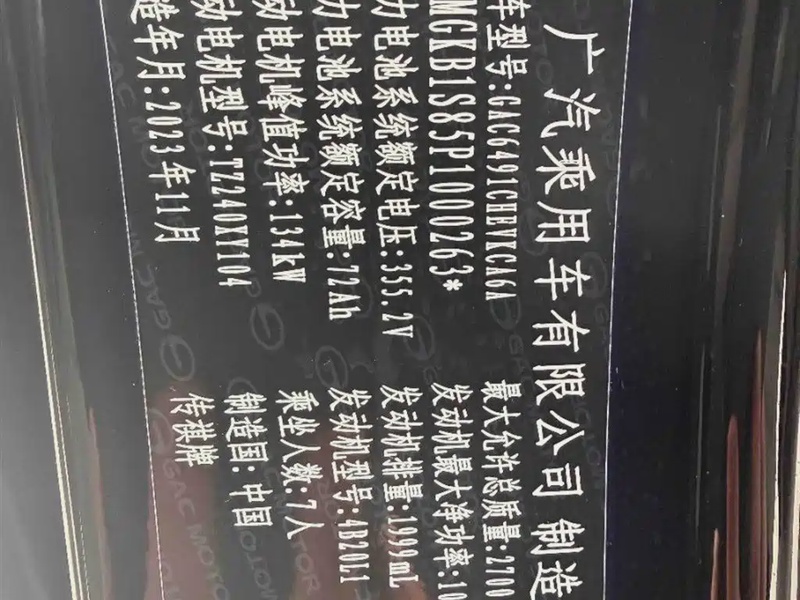 广汽乘用车有限公司 制造
车型号:GAC6491CHEVKCA6A
最大允许总质量:2700
MGKB1S85P1000263*
发动机最大净功率:10
力电池系统额定电压:355.2V
发动机排量:1999mL
力电池系统额定容量:72Ah
发动机型号:4B20J1
动电机峰值功率:134kW
乘坐人数:7人
动电机型号:TZ240XY104
制造国:中国
造年月:2023年11月
传祺牌
GAC MOTOR